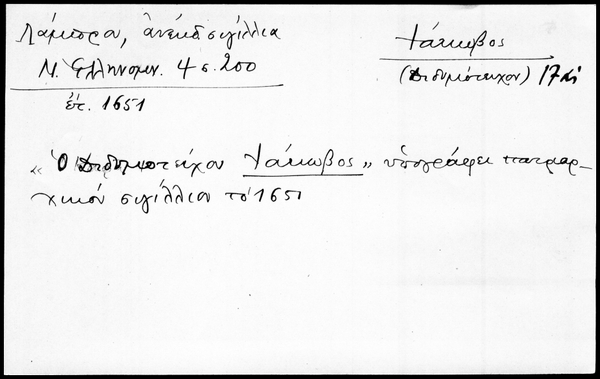 Λάμπρου, ἀνέκδ σιγίλλια
Ν. Ἑλληνομν. 4 σ. 200
ἔτ. 1651
Ἰάκωβος
(Διδυμότειχον) 17 αἰ
« Ὁ Διδυμοτείχου Ἰάκωβος » ὑπογράφει πατριαρ-
χικόν σιγίλλιον τό 1651